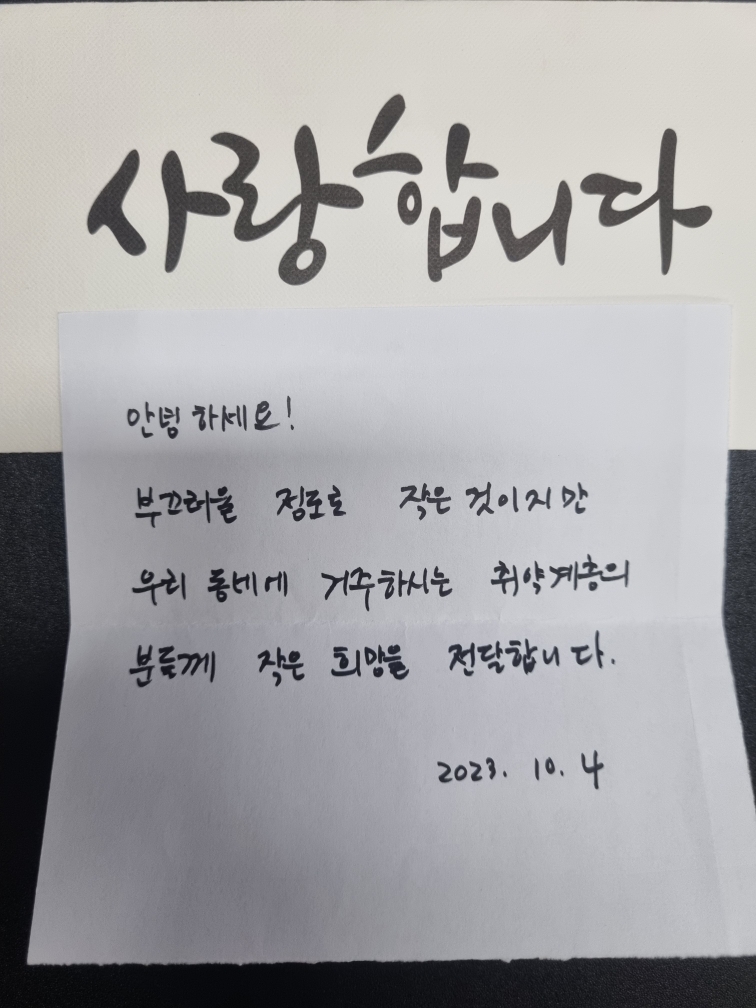 사랑합니다
안녕하세요!
부끄러울 정도로 작은 것이지만
우리 동네에 거주하시는 취약계층의
분들께 작은 희망을 전달합니다.
2023. 10. 4